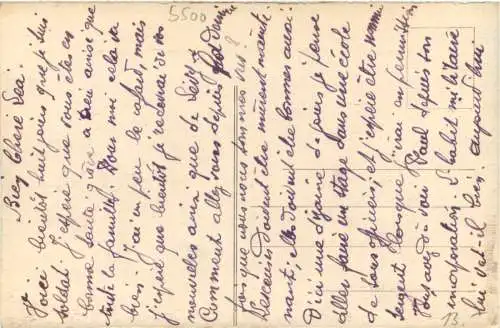 Bien Chère Léa.
Voici bientôt huit jours que je suis
soldat. J'espère que vous êtes en
bonne santé grâce à Dieu ainsi que
toute la famille. Pour moi cela va
bien. J'ai un peu le cafard, mais
j'espère que bientôt je recevrai de vos
nouvelles ainsi que de
Comment allez vous depuis
lors que nous nous sommes vus?
doivent être maintenant
nant, elles doivent être bonnes aussi
D'ici une dizaine de jours je pense
aller faire un stage dans une école
de sous officiers, et j'espère être
sergent lorsque j'irai en permission
Vous avez dû voir Paul depuis son
incorporation. L'habit militaire
lui va-t-il bien aujourd'hui
5500
13.